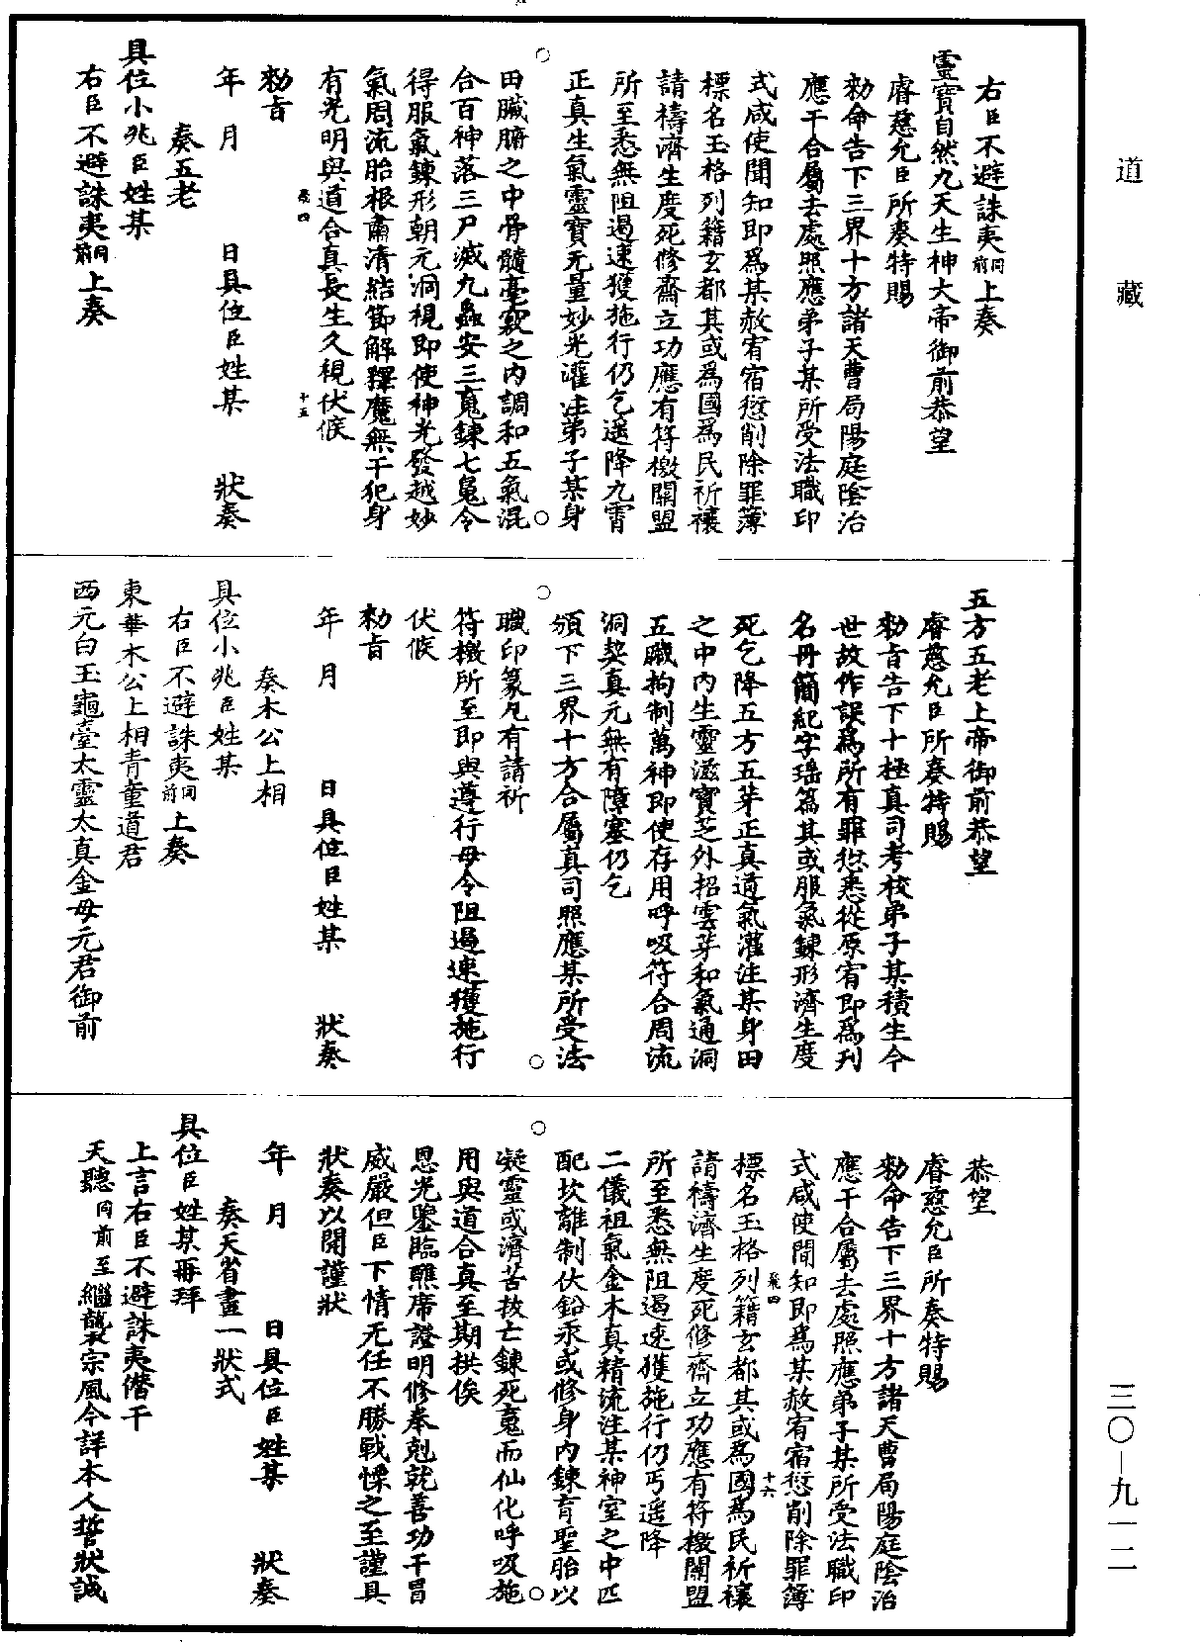 道藏
右臣不避誅夷同前上奏
靈寶自然九天生神大帝御前恭望
睿慈允臣所奏特賜
勑命告下三界十方諸天曹局陽庭陰治
應干合屬去處照應弟子某所受法職印
式咸使聞知即爲某赦宥宿愆削除罪簿
標名玉格列籍玄都其或爲國爲民祈禳
請禱濟生度死修齋立功應有符檄關盟
所至悉無阻遏速獲施行仍乞遥降九霄
正真生氣靈寶无量妙光灌注弟子某身
田臟腑之中骨髓毫竅之内調和五氣混
合百神落三尸滅九蟲安三䰟鍊七魄令
得服氣鍊形朝元洞視即使神光發越妙
氣周流胎根肅清結節解釋魔無干犯身
有光明與道合真長生久視伏候
勑旨
年月日具位臣姓某狀奏
奏五老
具位小兆臣姓某
右臣不避誅夷同前上奏
五方五老上帝御前恭望
睿慈允臣所奏特賜
勑旨告下十極真司考校弟子某積生今
世故作誤爲所有罪愆悉從原宥即爲刋
名丹簡紀字瑶篇其或服氣鍊形濟生度
死乞降五方五芽正真道氣灌注某身田
之中内生靈滋寶芝外招雲芽和氣通洞
五臟拘制萬神即使存用呼吸符合周流
洞契真元無有障塞仍乞
頒下三界十方合屬真司照應某所受法
職印篆凡有請祈
符檄所至即與遵行毋令阻遏速獲施行
伏候
勑旨
年月日具位臣姓某狀奏
奏木公上相
具位小兆臣姓某
右臣不避誅夷同前上奏
東華木公上相青童道君
西元白玉龜臺太靈太真金母元君御前
恭望
睿慈允臣所奏特賜
勑命告下三界十方諸天曹局陽庭陰治
應干合屬去處照應弟子某所受法職印
式咸使聞知即爲某赦宥宿愆削除罪簿
標名玉格列籍玄都其或爲國爲民祈禳
請禱濟生度死修齋立功應有符檄關盟
所至悉無阻遏速獲施行仍丐遥降
二儀祖氣金木真精流注某神室之中匹
配坎離制伏鉛汞或修身内鍊育聖胎以
凝靈或濟苦拔亡鍊死䰟而仙化呼吸施
用與道合真至期拱俟
恩光鑒臨醮席證明修奉剋就善功干冒
威嚴但臣下情无任不勝戰慄之至謹具
狀奏以聞謹狀
年月日具位臣姓某狀奏
奏天省畫一狀式
具位臣姓某再拜
上言右臣不避誅夷僭干
天聽同前至繼襲宗風今詳本人誓狀誠
三〇—九一二